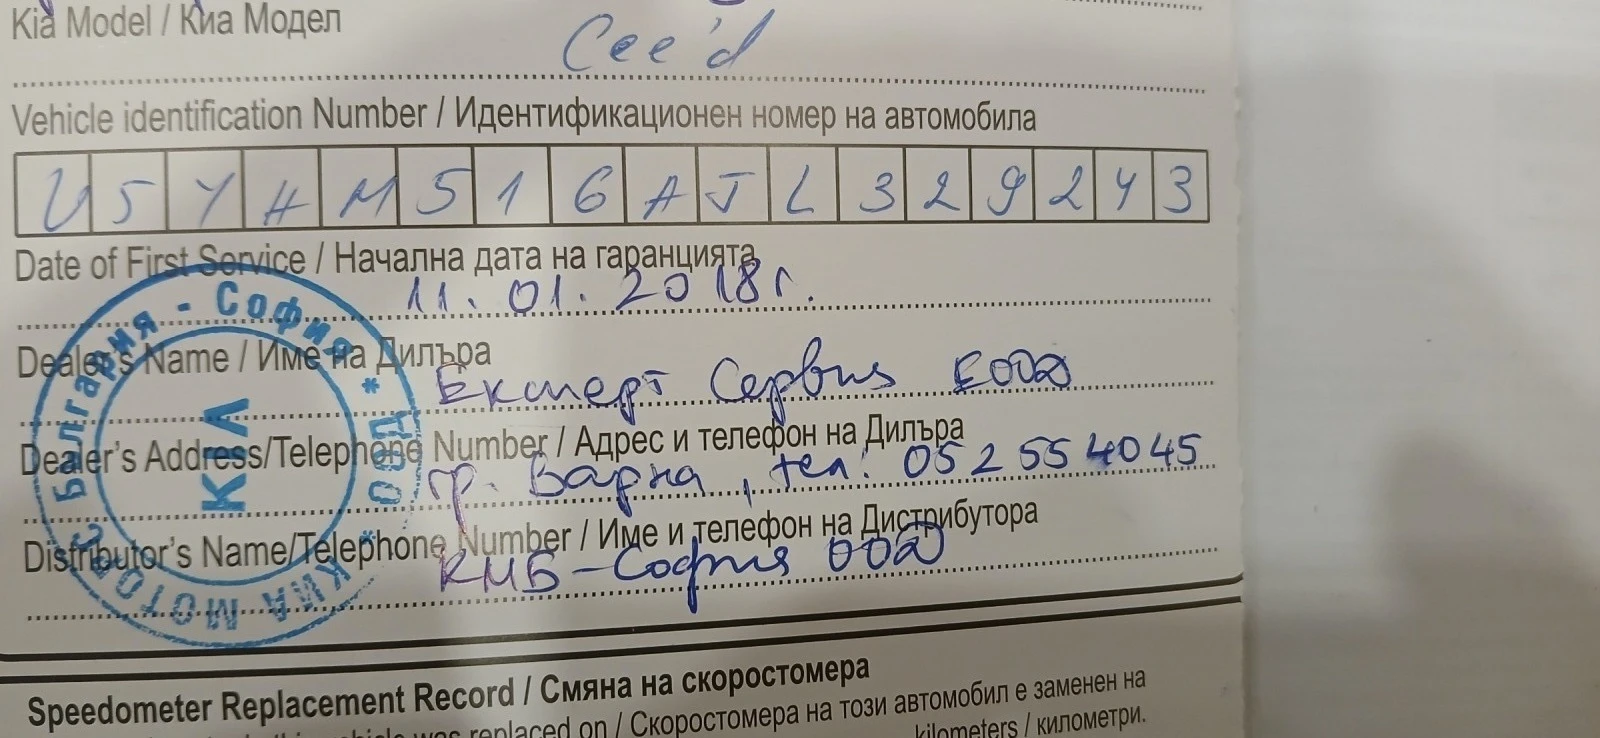 Kia Model / Киа Модел
Cee'd
Vehicle identification Number / Идентификационен номер на автомобила
U5YHM516AJL329243
Date of First Service / Начална дата на гаранцията
11.01.2018г.
Dealer's Name / Име на Дилъра
Експерт Сервиз ЕООД
Dealer's Address/Telephone Number / Адрес и телефон на Дилъра
гр. Варна, тел: 052 554045
Distributor's Name/Telephone Number / Име и телефон на Дистрибутора
КМБ-София ООД
България - София * ООД * КИА МОТОРС
КИА
Speedometer Replacement Record / Смяна на скоростомера
was replaced on / Скоростомера на този автомобил е заменен на
kilometers / километри.